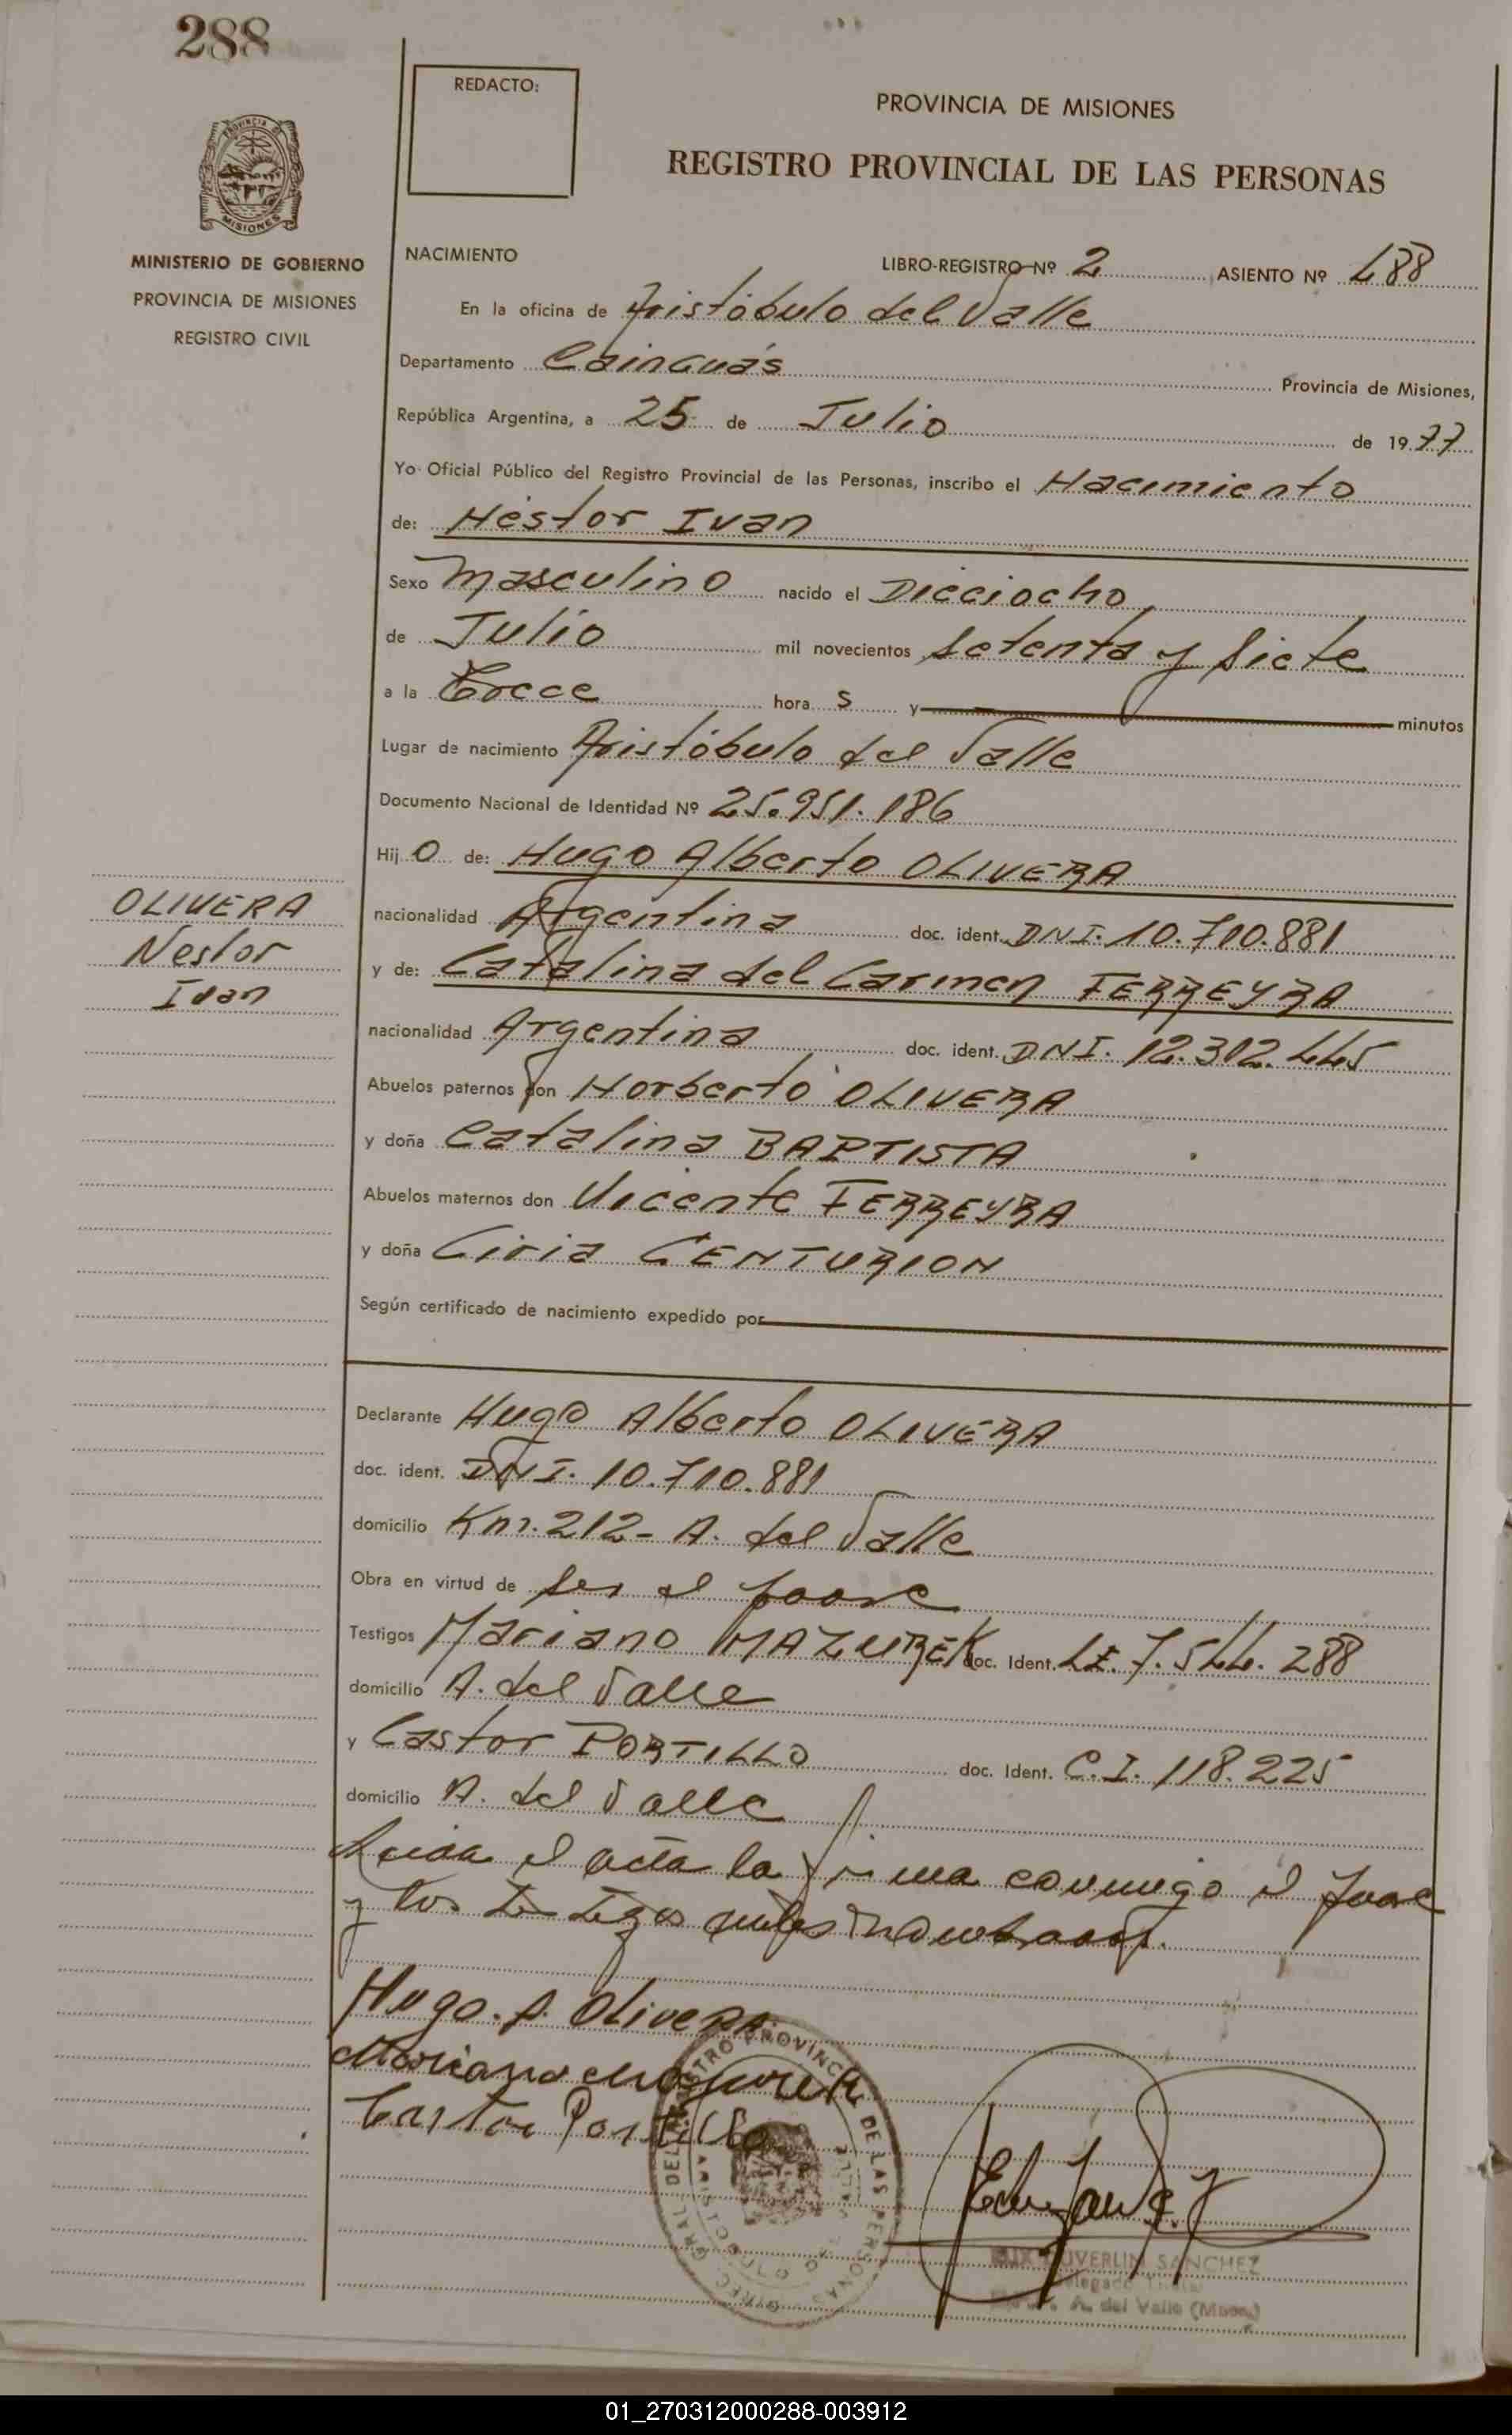 288
REDACTO:
PROVINCIA DE MISIONES
REGISTRO PROVINCIAL DE LAS PERSONAS
MISIONES
MINISTERIO DE GOBIERNO
PROVINCIA DE MISIONES
REGISTRO CIVIL
NACIMIENTO LIBRO-REGISTRO Nº 2 ASIENTO Nº 488
En la oficina de Aristóbulo del Valle
Departamento Cainguás Provincia de Misiones,
República Argentina, a 25 de Julio de 1977
Yo Oficial Público del Registro Provincial de las Personas, inscribo el Nacimiento
de: Néstor Ivan
Sexo Masculino nacido el Dieciocho
de Julio mil novecientos setenta y siete
a la Trece hora s y minutos
Lugar de nacimiento Aristóbulo del Valle
Documento Nacional de Identidad Nº 25.951.186
Hij o de: Hugo Alberto OLIVERA
OLIVERA
Nestor
Ivan
nacionalidad Argentina doc. ident. DNI. 10.710.881
y de: Catalina del Carmen FERREYRA
nacionalidad Argentina doc. ident. DNI. 12.312.445
Abuelos paternos don Norberto OLIVERA
y doña Catalina BAPTISTA
Abuelos maternos don Vicente FERREYRA
y doña Ciria CENTURION
Según certificado de nacimiento expedido por
Declarante Hugo Alberto OLIVERA
doc. ident. DNI. 10.710.881
domicilio Km. 212- A. del Valle
Obra en virtud de ser el padre
Testigos Mariano MAZUREK doc. Ident. LE. 7.544.288
domicilio A. del Valle
y Castor PORTILLO doc. Ident. C.I. 118.225
domicilio A. del Valle
Leida el acta la firma conmigo el padre
y los testigos
Hugo. A. Olivera
Mariano Mazurek
Castor Portillo
REGISTRO PROVINCIAL DE LAS PERSONAS
SANCHEZ
A. del Valle (Mnes.)
01_270312000288-003912